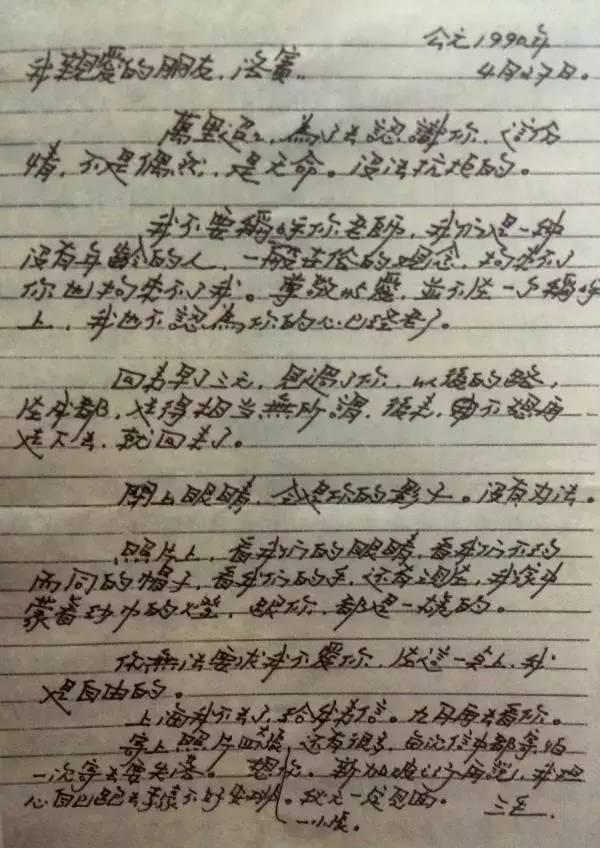 公元1990年
我親愛的朋友,洛賓:
4月27日。
萬里迢迢,為了去認識你,這份
情,不是偶然,是天命。沒法抗拒的。
我不要稱呼你老師,我們是一種
沒有年齡的人,一般世俗的觀念,拘束不了
你也拘束不了我。尊敬與愛,並不在一個稱呼
上,我也不認為你的心已經老了。
回來早了三天,見過了你,以後的路,
在成都,走得相當無所謂,後來,也不想再
走下去,就回來了。
閉上眼睛,全是你的影子。沒有辦法。
照片上,看我們的眼睛,看我們不約
而同的帽子,看我們的手,還有現在,我家中
蒙着紗巾的燈,跟你,都是一樣的。
你無法要求我不愛你,在這一点上,我
是自由的。
上海我不去了,給我來信。九月再去看你。
寄上照片四大張,還有很多,每次信中都寄,怕
一次寄去要失落。想你。新加坡之行再說,我担
心自己跑去 不好安排。秋天一定見面。 三毛
一小張。